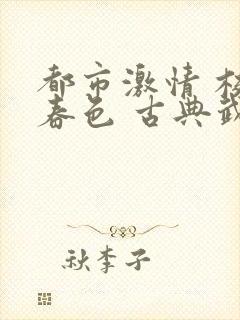 都市激情 校
春色 古典武
秋李子